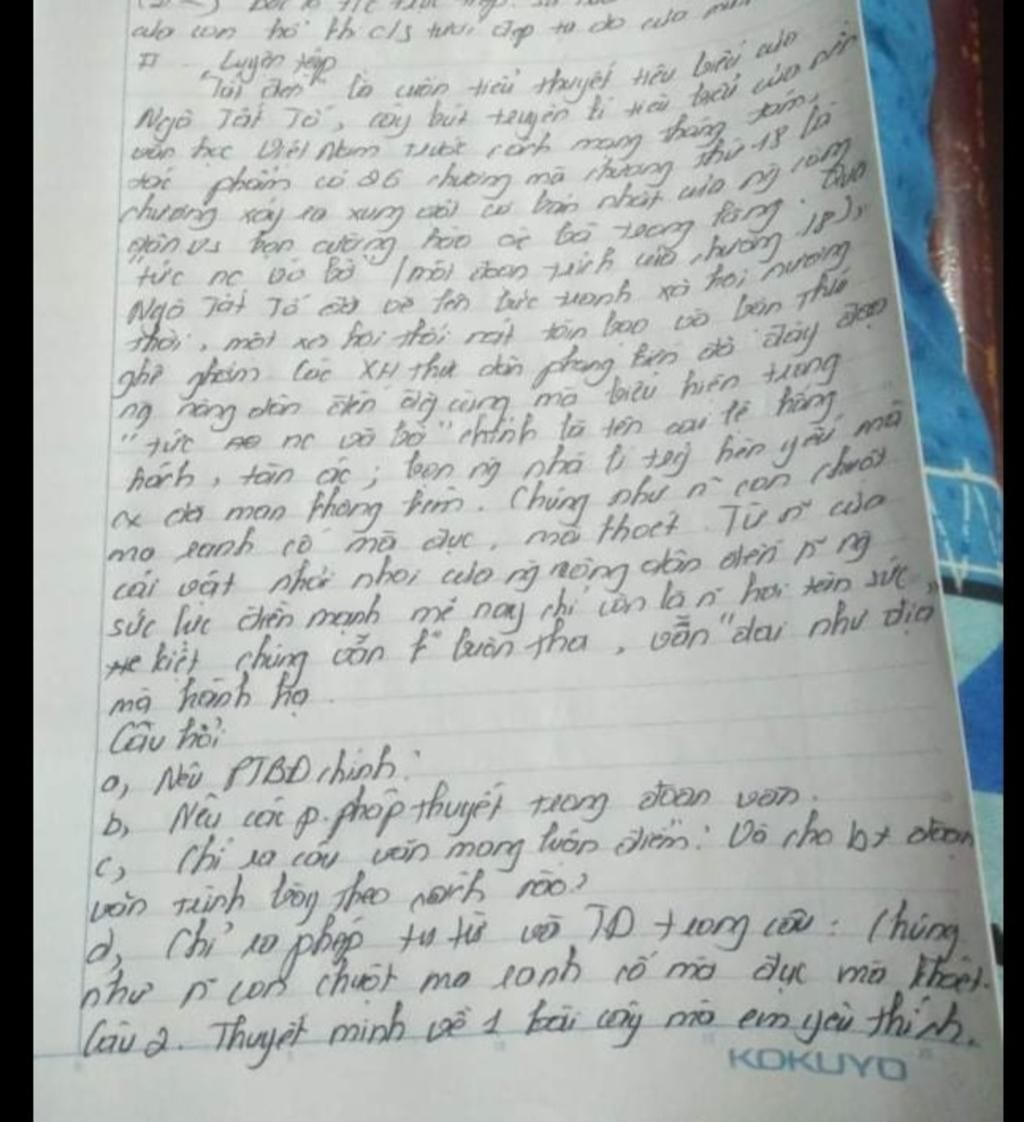 của con hổ th c/s tươi đẹp tự do của mình
II Luyện tập
"Tắt đèn" là cuốn tiểu thuyết tiêu biểu của
Ngô Tất Tố, cây bút truyện kí tiêu biểu của nền
văn học Việt Nam trước cách mạng tháng tám,
tác phẩm có 26 chương mà chương thứ 18 là
chương xảy ra xung đột cơ bản nhất của ng nông
dân vs bọn cường hào ác bá trong làng. Qua
"tức nc vỡ bờ" (một đoạn trích của chương 18),
Ngô Tất Tố đã vẽ lên bức tranh xã hội đương
thời, một xã hội thối nát tàn bạo và bản
ghê ghớm. Các XH thực dân phong kiến đó đày đọa
ng nông dân đến độ cùng mà biểu hiện trong
"tức nc vỡ bờ" chính là tên cai lệ hống
hách, tàn ác; bọn ng nhà lí trg hèn yếu mà
dã man không kém. Chúng như n~ con chuột
ma ranh cố mà đục, mà khoét. Từ n~ của
cải vật nhỏ nhoi của ng nông dân đến n~ ng
sức lực điền mạnh mẽ nay chỉ còn là n~ hơi tàn sức
kiệt chúng vẫn k buôn tha, vẫn "dai như đỉa"
mà hành hạ.
Câu hỏi:
a, Nêu PTBĐ chính.
b, Nêu các p.pháp thuyết trong đoạn văn.
c, Chỉ ra câu văn mang luận điểm. Và cho bt đoạn
văn trình bày theo cách nào?
d, Chỉ ra phép tu từ và TD trong câu: Chúng
như n~ con chuột ma ranh cố mà đục mà khoét.
Câu 2. Thuyết minh về 1 loài cây mà em yêu thích.
KOKUYO